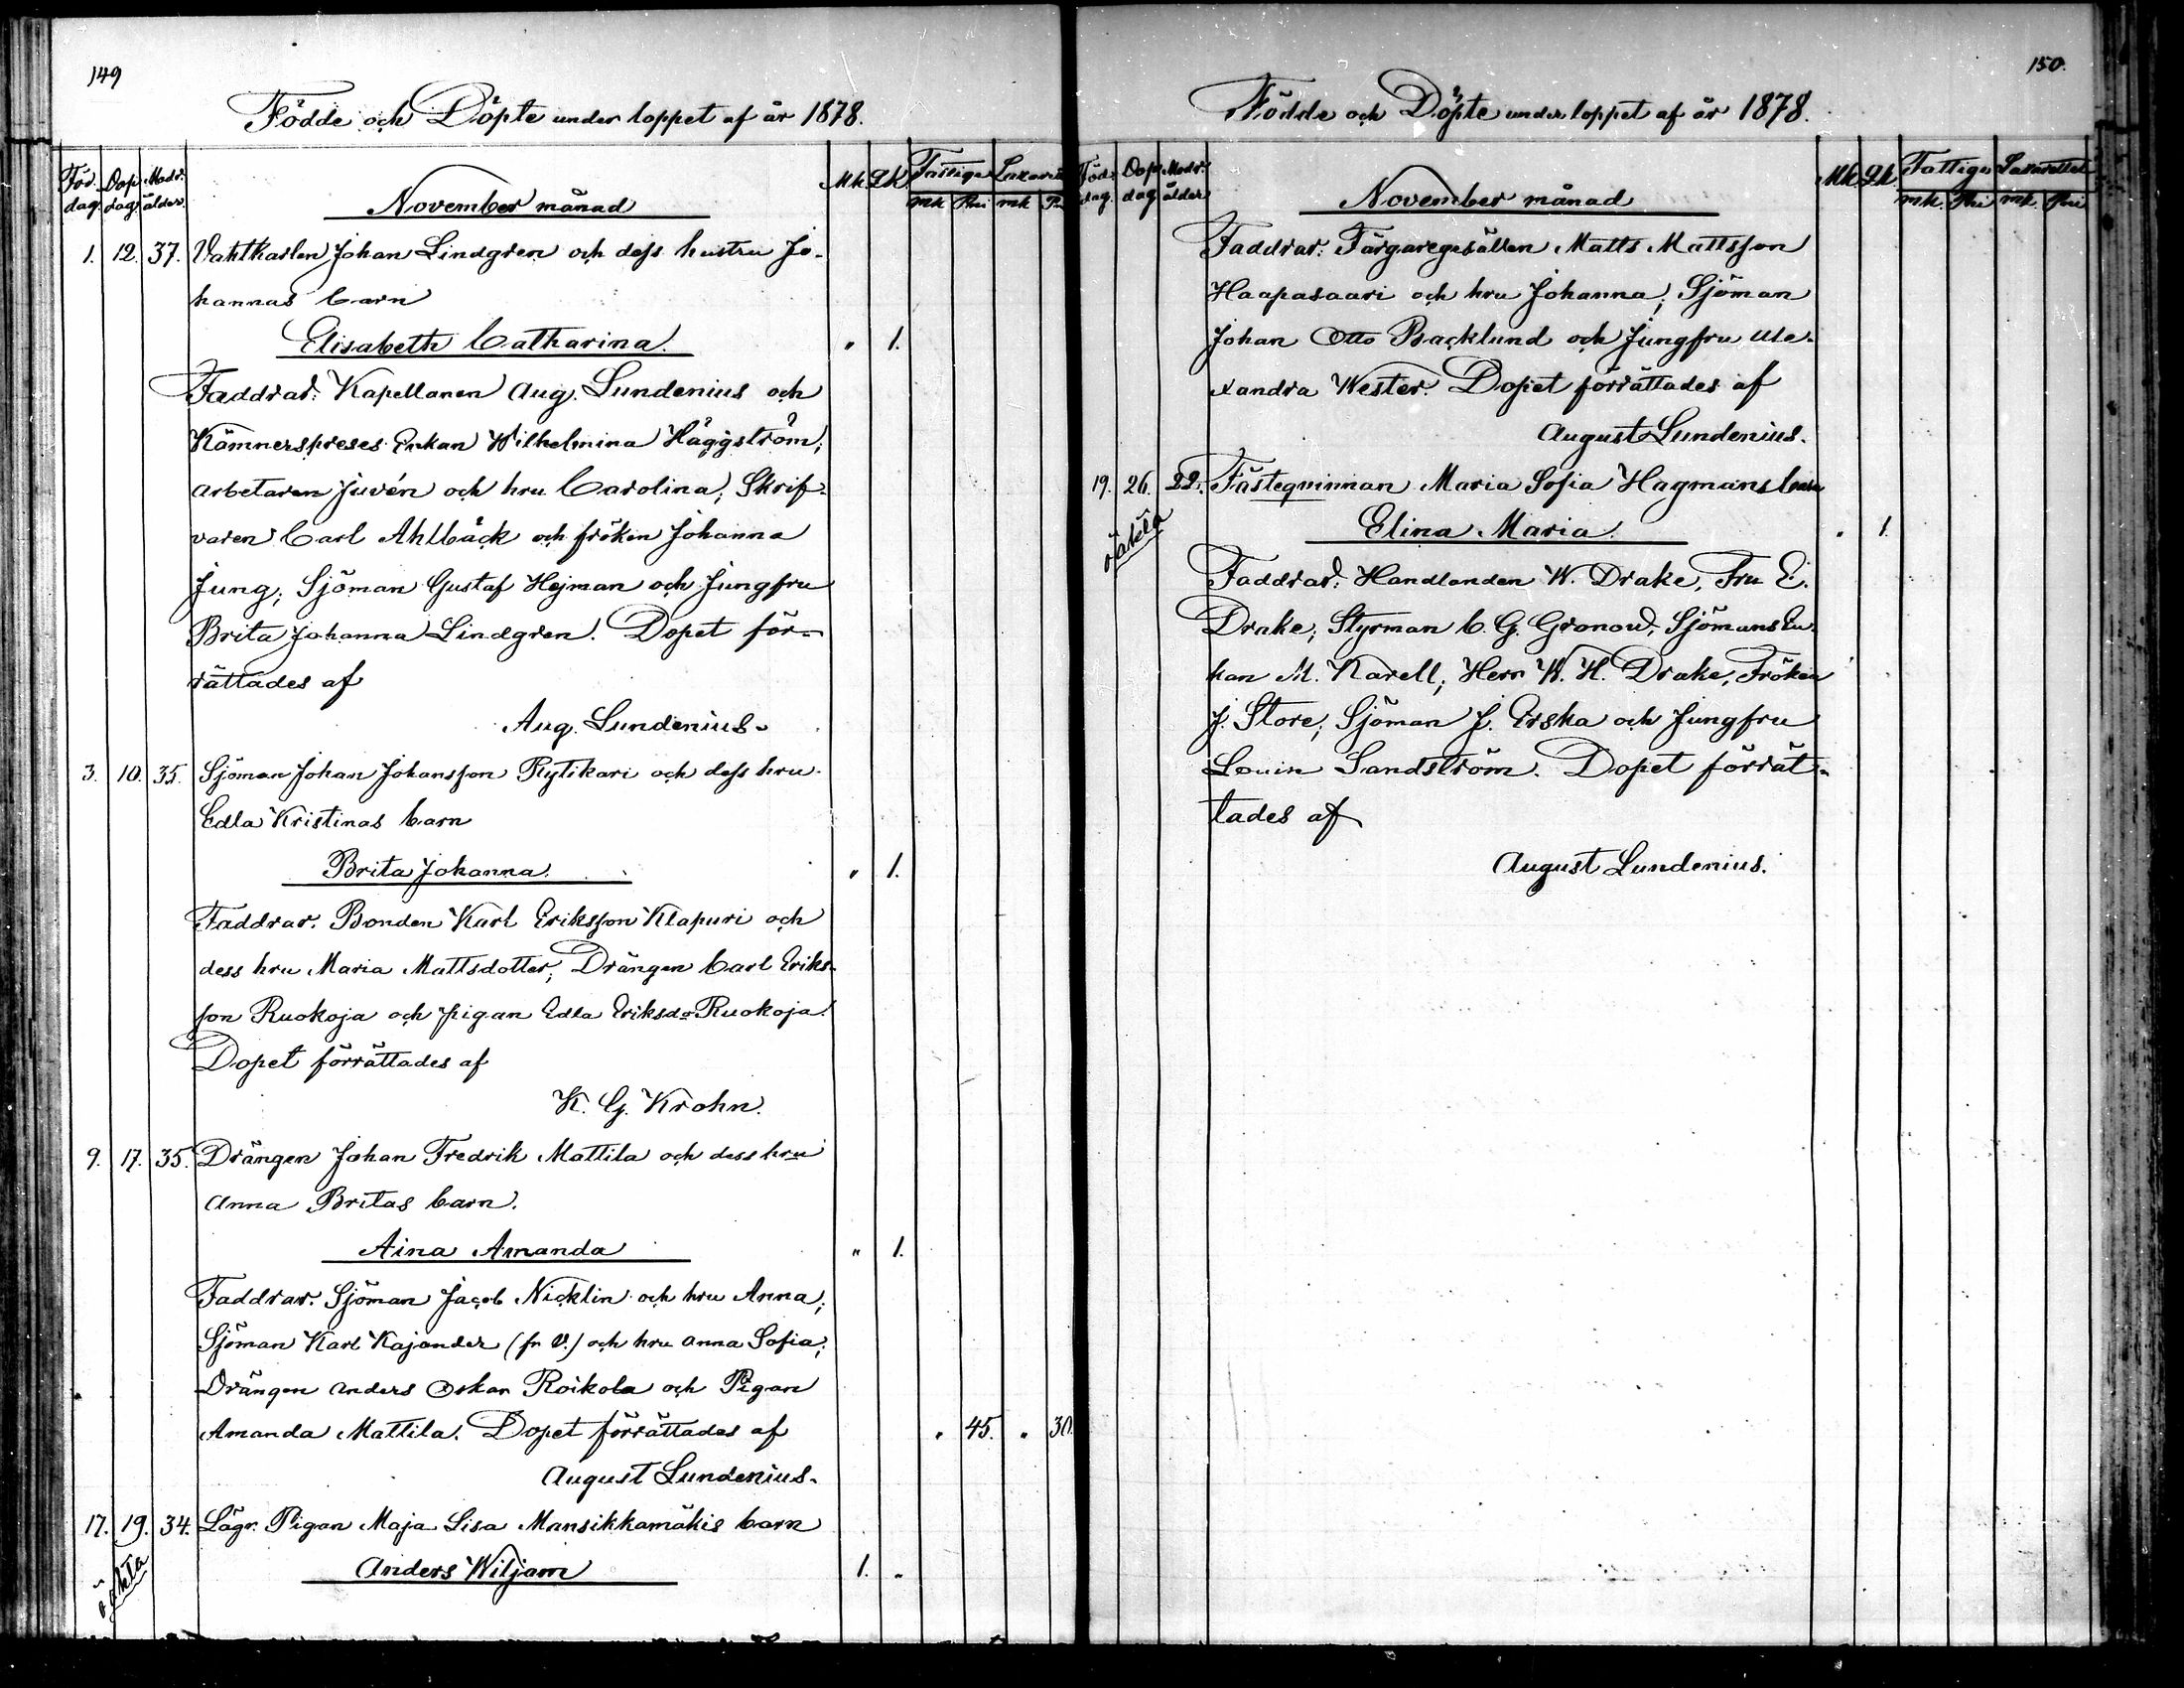 149
Födde och Döpte under loppet af år 1878.
Föd. dag. Dop dag. Modr. ålder. November månad Mk Qk Fattige mk Pni mk
1. 12. 37. Vahtkarlen Johan Lindgren och dess hustru Jo-
hannas barn
Elisabeth Catharina. " 1.
Faddrar: Kapellanen Aug. Lundenius och
Kämnerspreses Enkan Wilhelmina Häggström;
arbetaren Juvén och hru Carolina; Skrif-
varen Carl Ahlbäck och fröken Johanna
Jung; Sjöman Gustaf Hejman och Jungfru
Brita Johanna Lindgren. Dopet för-
rättades af
Aug. Lundenius.
3. 10. 35. Sjöman Johan Johansson Rytikari och dess hru
Edla Kristinas barn
Brita Johanna. " 1.
Faddrar. Bonden Karl Eriksson Klapuri och
dess hru Maria Mattsdotter; Drängen Carl Eriks-
son Ruokoja och pigan Edla Eriksdr Ruokoja.
Dopet förrättades af
K. G. Krohn.
9. 17. 35. Drängen Johan Fredrik Mattila och dess hru
Anna Britas barn.
Aina Amanda " 1.
Faddrar. Sjöman Jacob Nicklin och hru Anna;
Sjöman Karl Kajander (fr V.) och hru Anna Sofia;
Drängen Anders Oskar Roikola och Pigan
Amanda Mattila. Dopet förrättades af " 45. " 30.
August Lundenius.
17. 19. 34. Lägr. Pigan Maja Lisa Mansikkamäkis barn
oäkta
Anders Wiljam 1. "
150.
Födde och Döpte under loppet af år 1878.
Föd. dag. Dop dag Modr. ålder November månad Mk Qk. Fattige Lazarettet mk. Pni mk. Pni
Faddrar: Färgaregesällen Matts Mattsson
Haapasaari och hru Johanna; Sjöman
Johan Otto Backlund och Jungfru Ale-
xandra Wester. Dopet förrättades af
August Lundenius.
19. 26. 22. Fästeqvinnan Maria Sofia Hagmans barn
oäkta
Elina Maria. " 1.
Faddrar: Handlanden W. Drake, Fru E.
Drake; Styrman C. G. Gronow, Sjömans En-
kan M. Karell; Herr W. H. Drake, Fröken
J. Store; Sjöman J. Erska och Jungfru
Sandström. Dopet förrät-
tades af
August Lundenius.